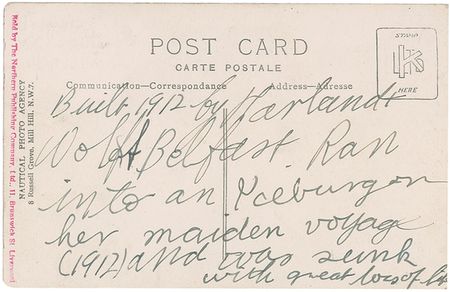 POST CARD
CARTE POSTALE
Communication—Correspondance Address—Adresse
STAMP
HERE
Built, 1912 by Harland &
Wolff, Belfast. Ran
into an Iceburg on
her maiden voyage
(1912) and was sunk
with great loss of
Sold by The Northern Publishing Company, Ltd., 11, Brunswick St. Liverpool
NAUTICAL PHOTO AGENCY
8 Russell Grove, Mill Hill, N.W.7.